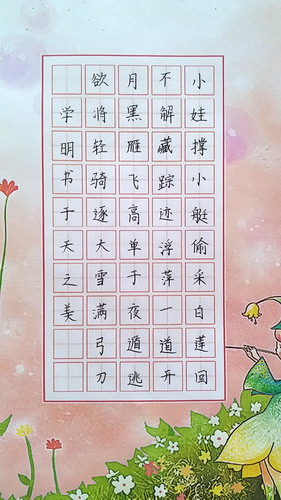 小娃撑小艇偷采白莲回
不解藏踪迹浮萍一道开
月黑雁飞高单于夜遁逃
欲将轻骑逐大雪满弓刀
学明书于天之美